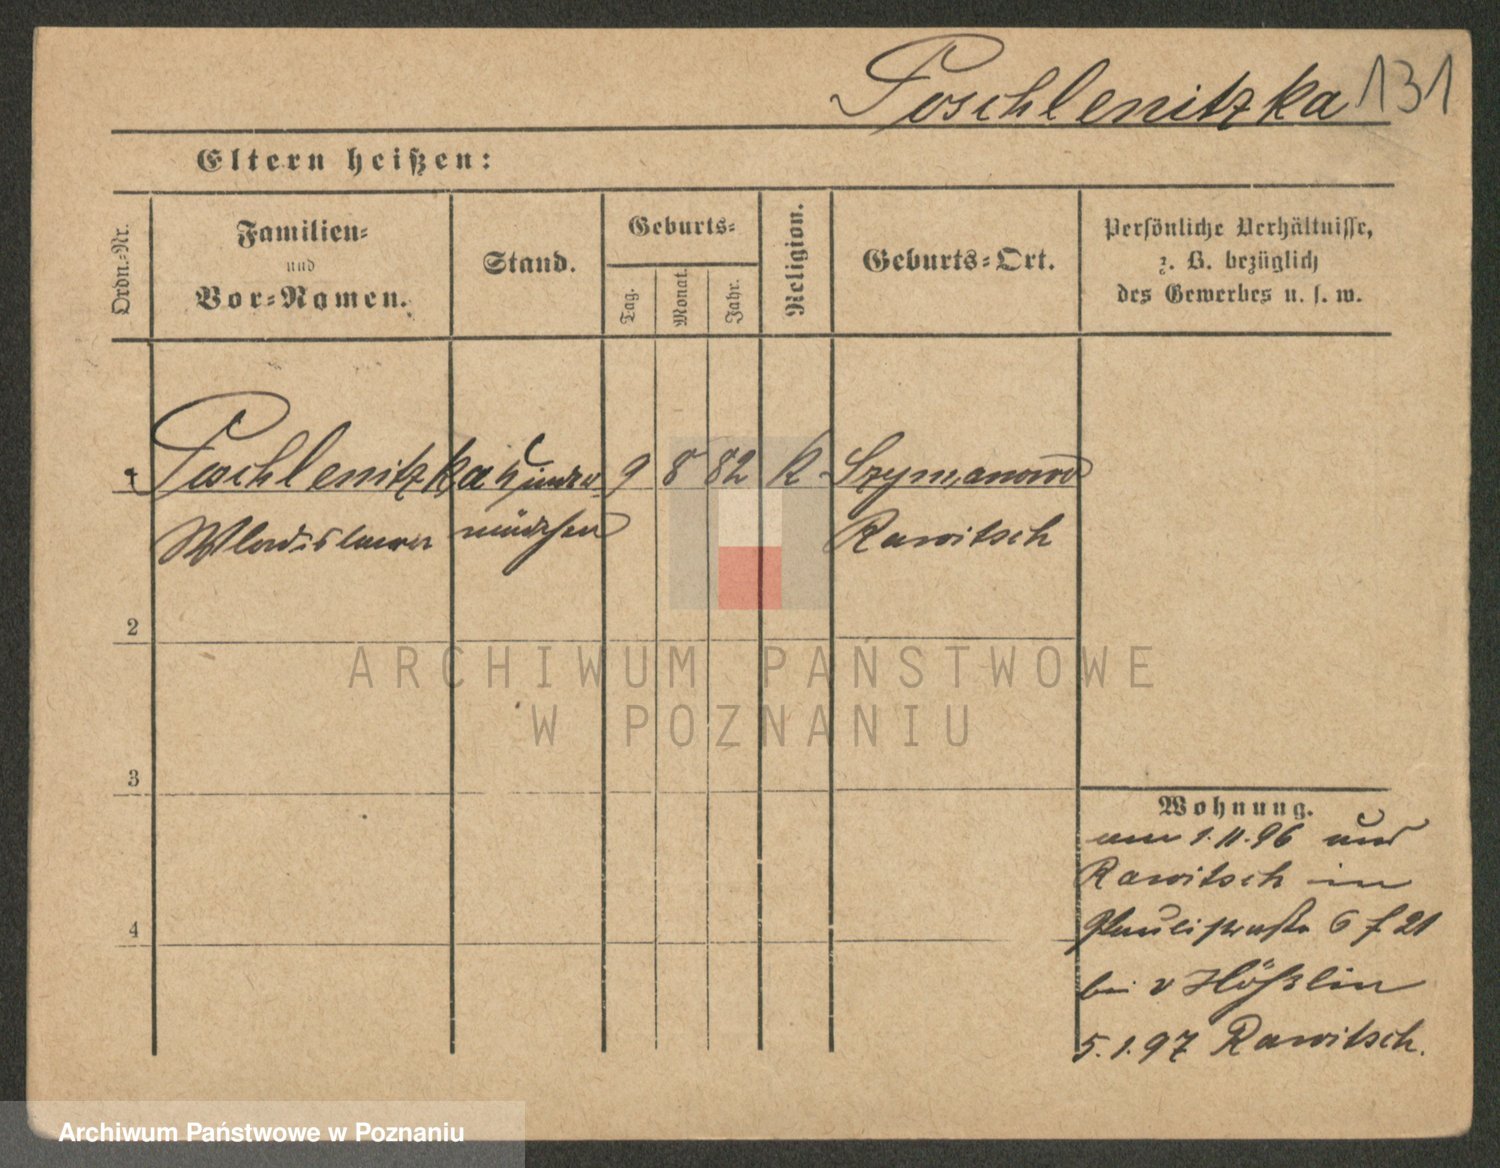 Poschlenitzka 131
Eltern heißen:
Ordn.-Nr.
Familien-
und
Vor-Namen.
Stand.
Geburts-
Tag.
Monat.
Jahr.
Religion.
Geburts-Ort.
Persönliche Verhältnisse,
z. B. bezüglich
des Gewerbes u. s. w.
1 Poschlenitzka Kinder 9 8 82 K Szymanowo
Wladislawa mädchen Rawitsch
2
ARCHIWUM PAŃSTWOWE
W POZNANIU
3
Wohnung.
am 1.11.96 aus
Rawitsch in
Paulistraße 6
bei v Hößlin
4
5.1.97 Rawitsch.
Archiwum Państwowe w Poznaniu